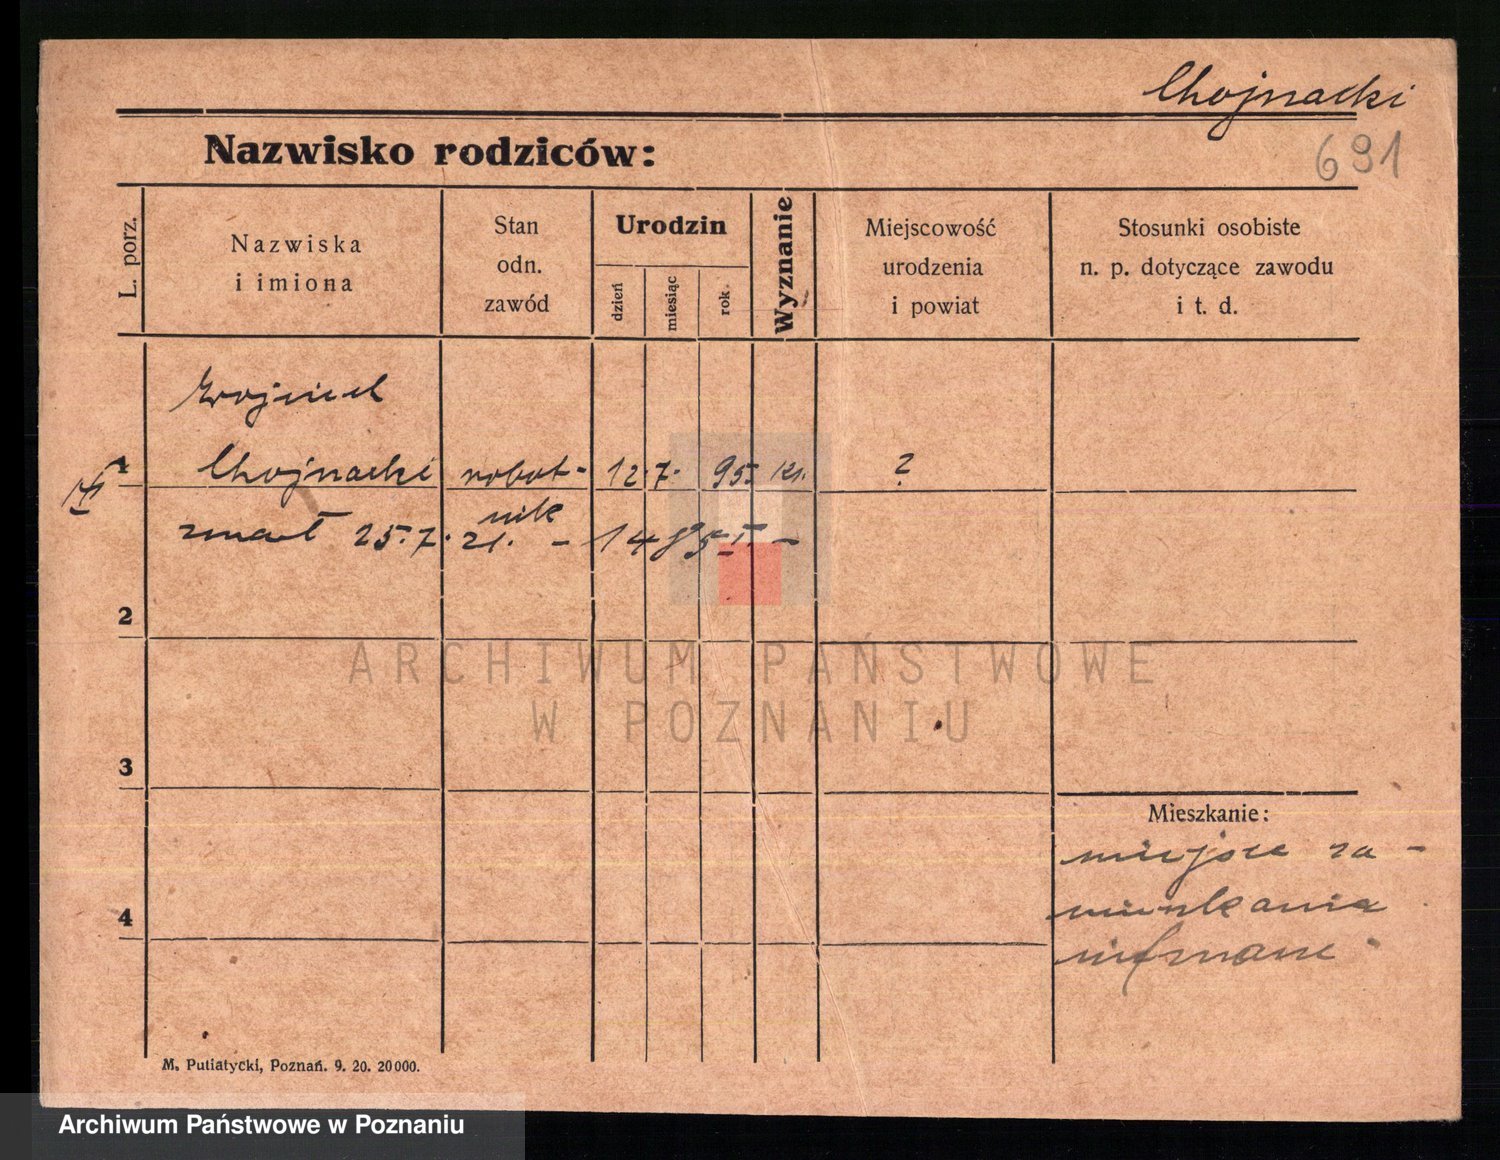 Chojnacki
691
Nazwisko rodziców:
L. porz.
Nazwiska
i imiona
Stan
odn.
zawód
Urodzin
dzień
miesiąc
rok
Wyznanie
Miejscowość
urodzenia
i powiat
Stosunki osobiste
n. p. dotyczące zawodu
i t. d.
Wojciech
1 Chojnacki robot- 12. 7. 95 ?
nik
zmarł 25. 7. 21. -
2
3
4
Mieszkanie:
miejsce za-
mieszkania
nieznane
M. Putiatycki, Poznań. 9. 20. 20000.
ARCHIWUM PAŃSTWOWE
W POZNANIU
Archiwum Państwowe w Poznaniu